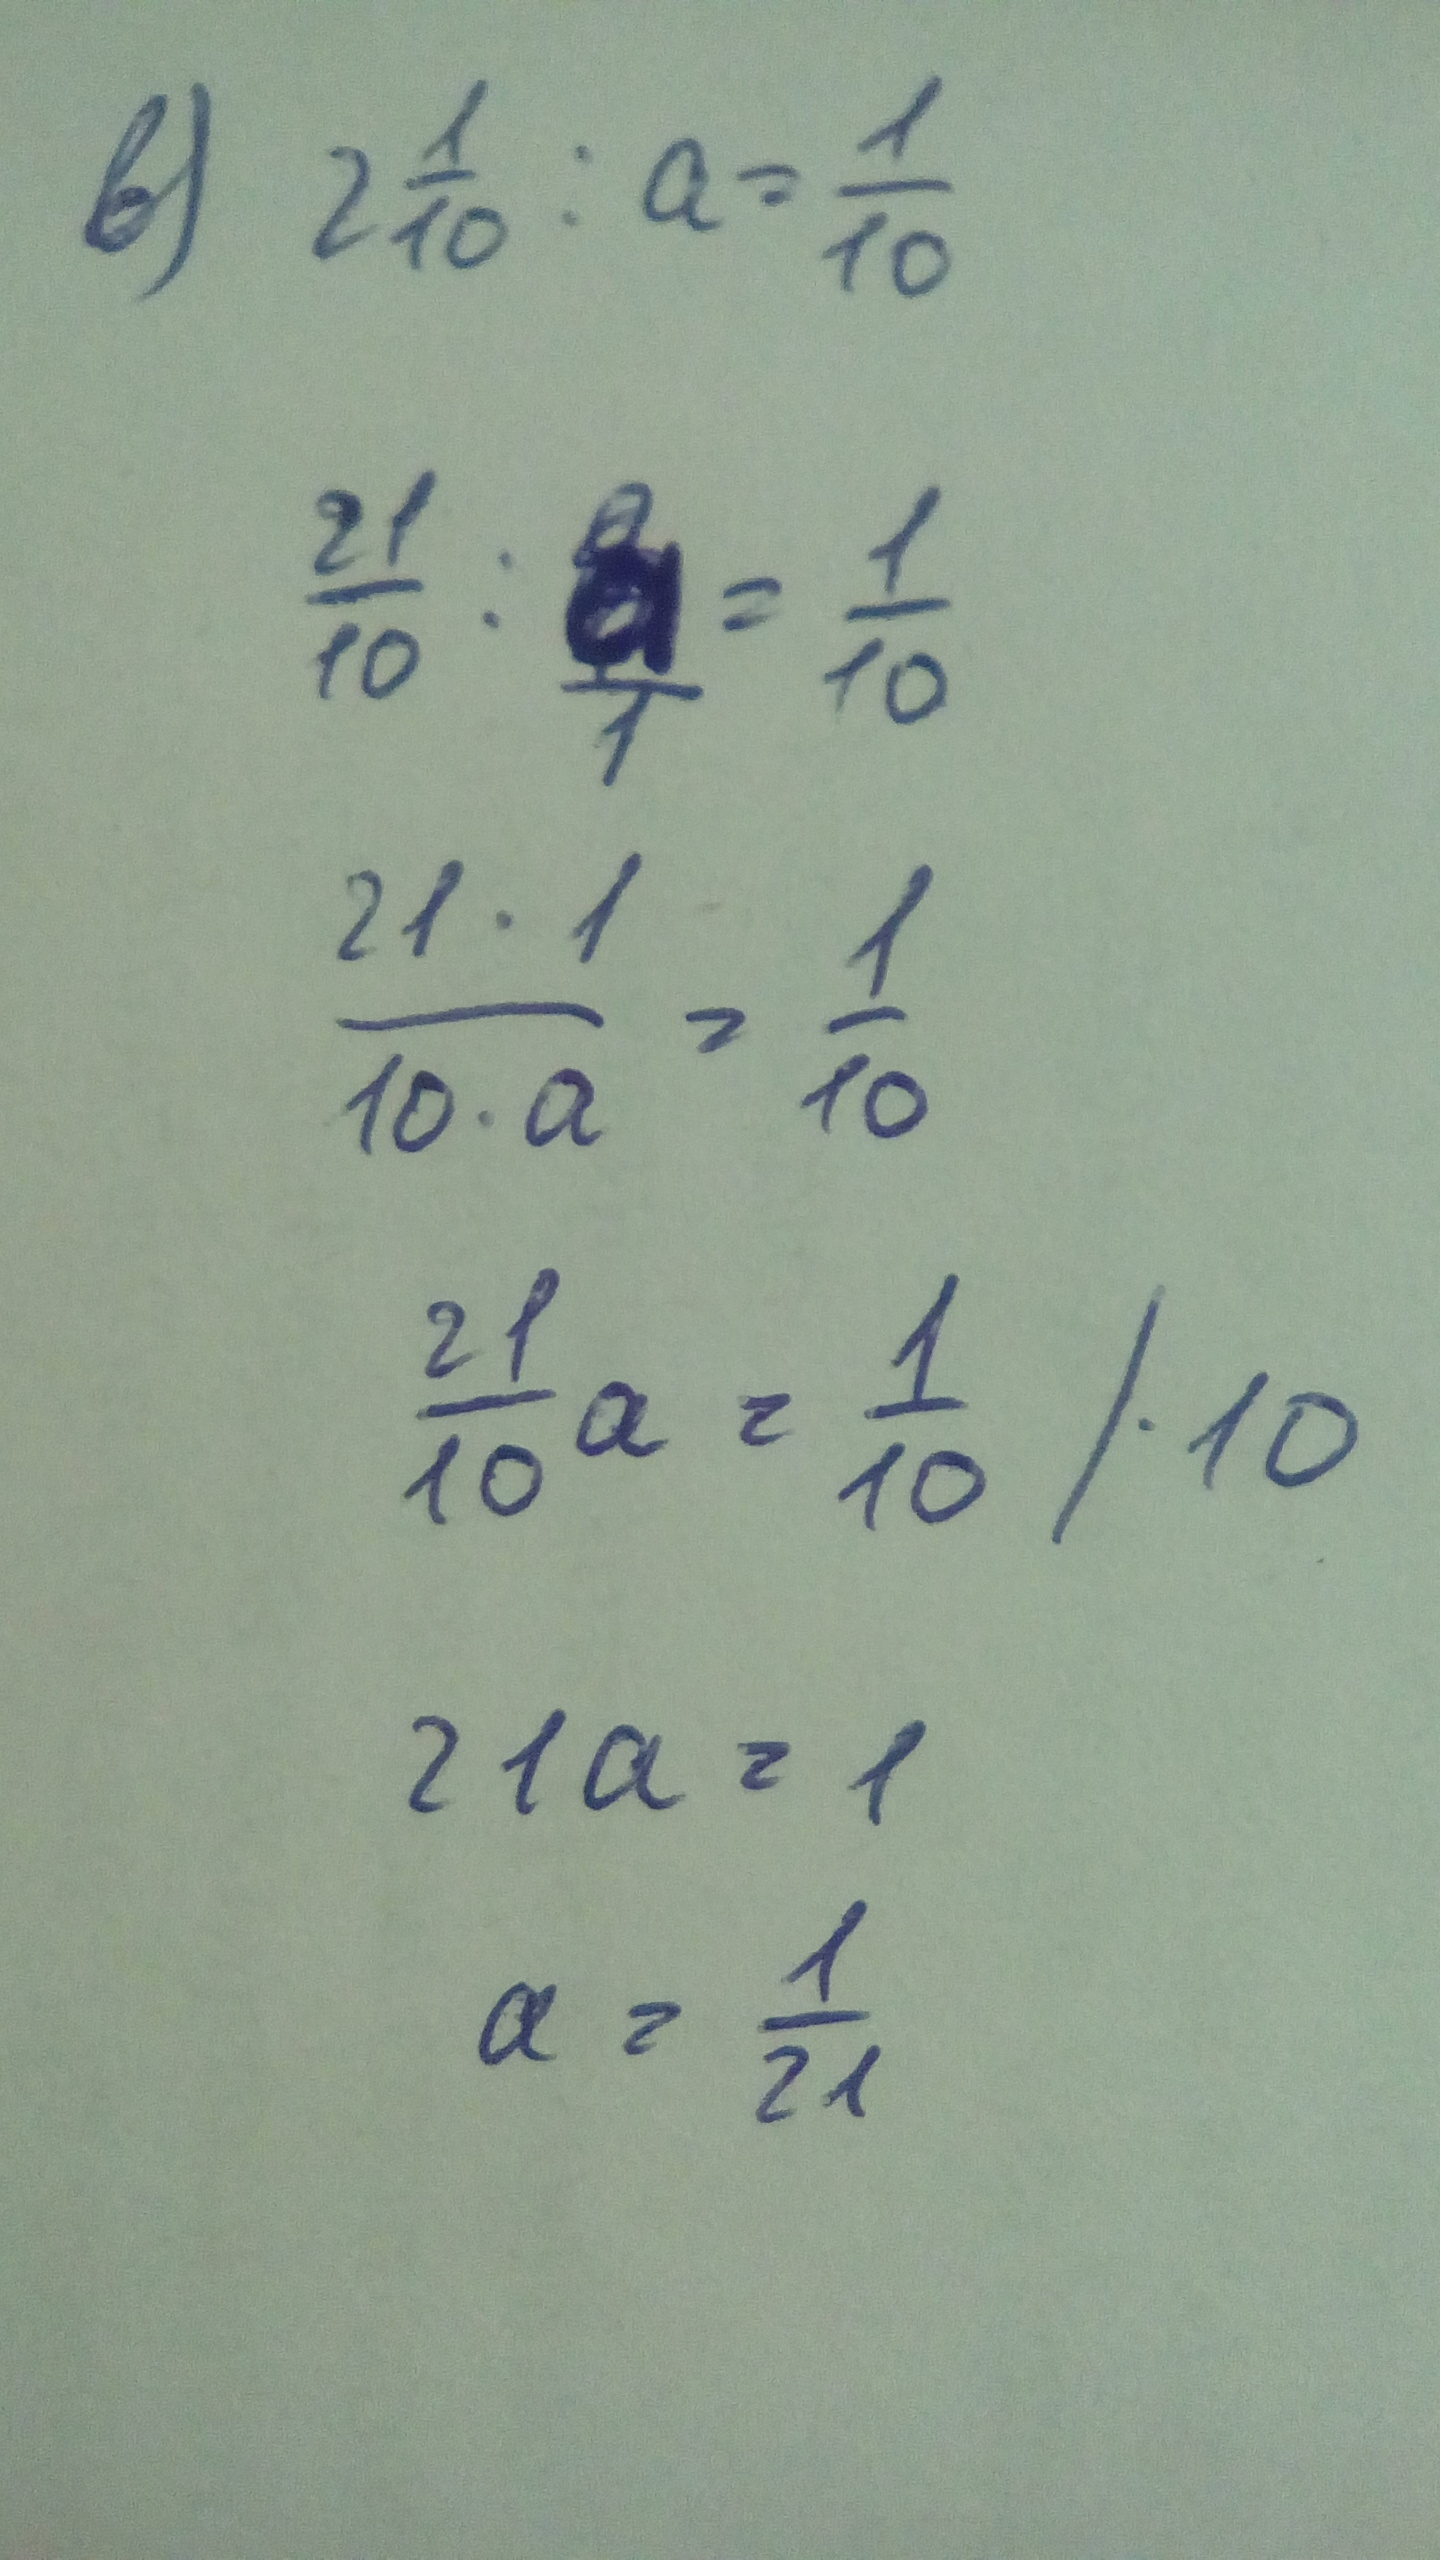 в) 2 1/10 : a = 1/10
21/10 : a/1 = 1/10
21 · 1 / 10 · a = 1/10
21/10 a = 1/10 / · 10
21a = 1
a = 1/21